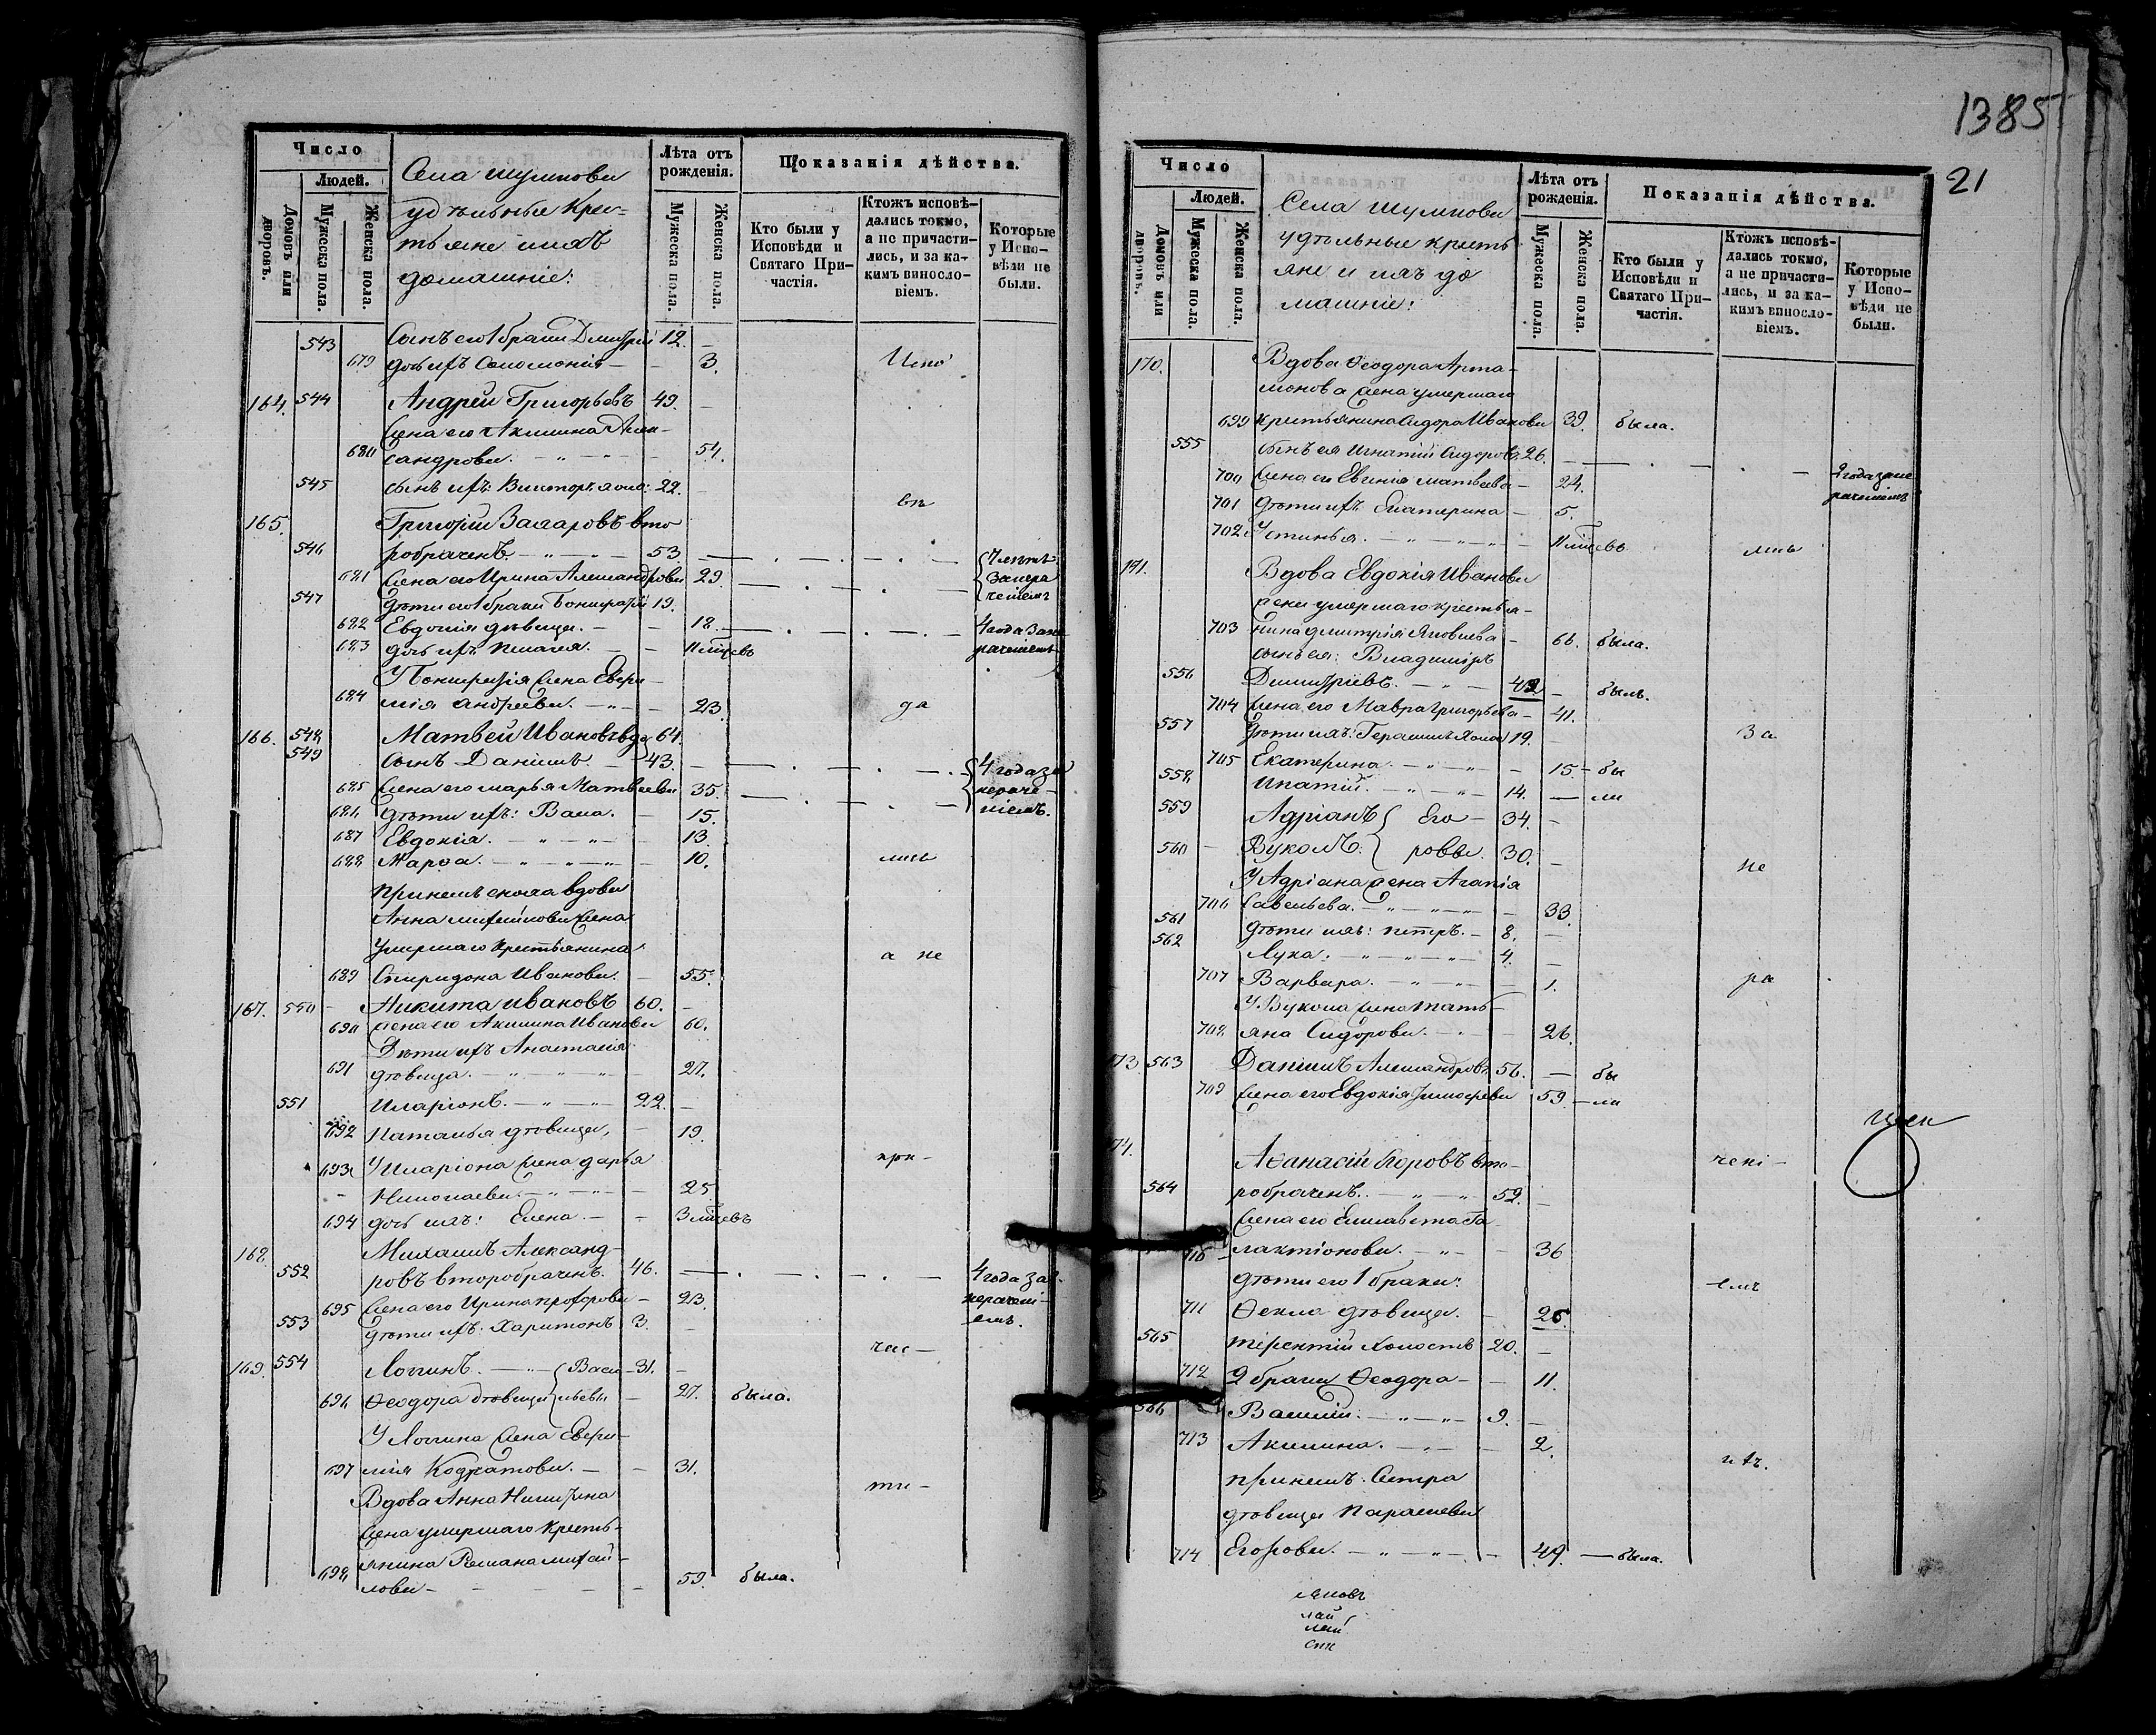 Число
Людей.
Домовъ или дворовъ.
Мужеска пола.
Женска пола.
Села Шумнова
удѣльные кресть
яне и ихъ
домашніе:
Лѣта отъ рожденія.
Мужеска пола.
Женска пола.
Показанія дѣйства.
Кто были у Исповѣди и Святаго Причастія.
Ктожъ исповѣдались токмо, а не причастились, и за какимъ винословіемъ.
Которые у Исповѣди не были.
543 Сынъ его 1 брака Димитрій 12. –
679 дочь ихъ Соломонія – – 3. Испо
164. 544 Андрей Григорьевъ 49. –
Жена его Акилина Алек-
680 сандрова. – „ – „ – 54.
545 сынъ ихъ: Викторъ холо: 22. – вѣ
165. Григорій Захаровъ вто
546 робраченъ. – „ – „ – 53
681 Жена его Ирина Александрова 29.
547 дѣти его 1 брака Понкратій 19.
682 Евдокія дѣвица. – – 18. 4 года за не
683 дочь ихъ Пелагея. – – 11 мѣсцевъ раченіемъ
У Понкратія жена Евфи-
684 мія Андреева. – „ – 23. да
166. 548 Матвей Ивановъ вдо 64.
549 Сынъ Даніилъ – 43. – 4 года за
685 Жена его Марья Матвеева 35. нераче-
686 дѣти ихъ: Васса. – 15. ніемъ.
687 Евдокія. – „ – „ – 13.
688 Марѳа. – „ – „ – „ – 10. лись
Принемъ сноха вдова
Анна Михайлова жена
умершаго крестьянина а не
689 Спиридона Иванова. – 55.
167. 550 – Никита Ивановъ 60. –
690 жена его Акилина Иванова 60.
Дѣти ихъ Анастасія
691 дѣвица. – „ – „ – „ – 27.
551 Иларіонъ. – „ – „ – 22. –
692 Наталья дѣвица, – 19.
693 У Иларіона жена Дарья при-
Николаева. – „ – „ – 25
694 дочь ихъ: Елена. – – 3 мѣсцевъ
168. Михаилъ Александ-
552 ровъ второбраченъ. 46. 4 года за
695 Жена его Ирина Прохорова – 23. нерачені-
553 дѣти ихъ: Харитонъ 3. – емъ.
час –
169. 554 Логгинъ. – „ – Васи – 31. –
696 Ѳеодора дѣвица льевы – 27. была.
У Логгина жена Евфи-
697 мія Кодратова. – – 31.
Вдова Анна Никитина ти –
Жена умершаго кресть-
янина Романа Михай-
698 лова – – – – – 59. была.
1385
21
Число
Людей.
Домовъ или дворовъ.
Мужеска пола.
Женска пола.
Села Шумнова
удѣльные кресть
яне и ихъ до
машніе:
Лѣта отъ рожденія.
Мужеска пола.
Женска пола.
Показанія дѣйства.
Кто были у Исповѣди и Святаго Причастія.
Ктожъ исповѣдались токмо, а не причастились, и за какимъ винословіемъ.
Которые у Исповѣди не были.
170. Вдова Ѳеодора Арта-
монова жена умершаго
699 крестьянина Сидора Иванова 39. была.
555 Сынъ ея Игнатій Сидоровъ 26. 2 года за не
700 Жена его Евгенія Матвеева – 24. раченіемъ
701 дѣти ихъ Екатерина – 5.
702 Устинья. – „ – „ – „ – 11 мѣсцевъ лись
171. Вдова Евдокія Иванова
жена умершаго крестья-
703 нина Димитрія Яковлева – 66. была.
сынъ ея: Владиміръ
556 Димитріевъ. – „ – 42 – былъ.
704 Жена его Мавра Григорьева – 41.
557 Дѣти ихъ: Герасимъ холос 19. – за
705 Екатерина. – „ – „ – – 15. – бы
558 Игнатій. – „ – „ – 14. – ли
559 Адріанъ Его – 34. –
560 – Вуколъ. ровы. 30. – не
У Адріана жена Агапія
706 Савельева. – „ – „ – „ – 33.
561 дѣти ихъ: Петръ. – 8. –
562 Лука. – „ – „ – „ – 4. –
707 Варвара. – „ – „ – – 1. ра
У Вукола жена Тать-
708 яна Сидорова. – . – – 26.
173. 563 Даніилъ Александровъ 56. – бы
709 Жена его Евдокія Тимоѳеева 59. – ли
74. Аѳанасій Егоровъ вто- чені –
564 робраченъ. – „ – „ 52. –
Жена его Елисавета Га
710 – лактіонова. – „ – – 36
дѣти его 1 брака: емъ
711 Ѳекла дѣвица. – 26.
565 Терентій холостъ 20. –
712 2 брака Ѳеодора – – 11.
566 Василій. – „ – „ – 9. –
713 Акилина. – „ – – 2.
Принемъ: Сестра
дѣвица Парасковья
714 Егорова. – „ – „ – – 49. – была.